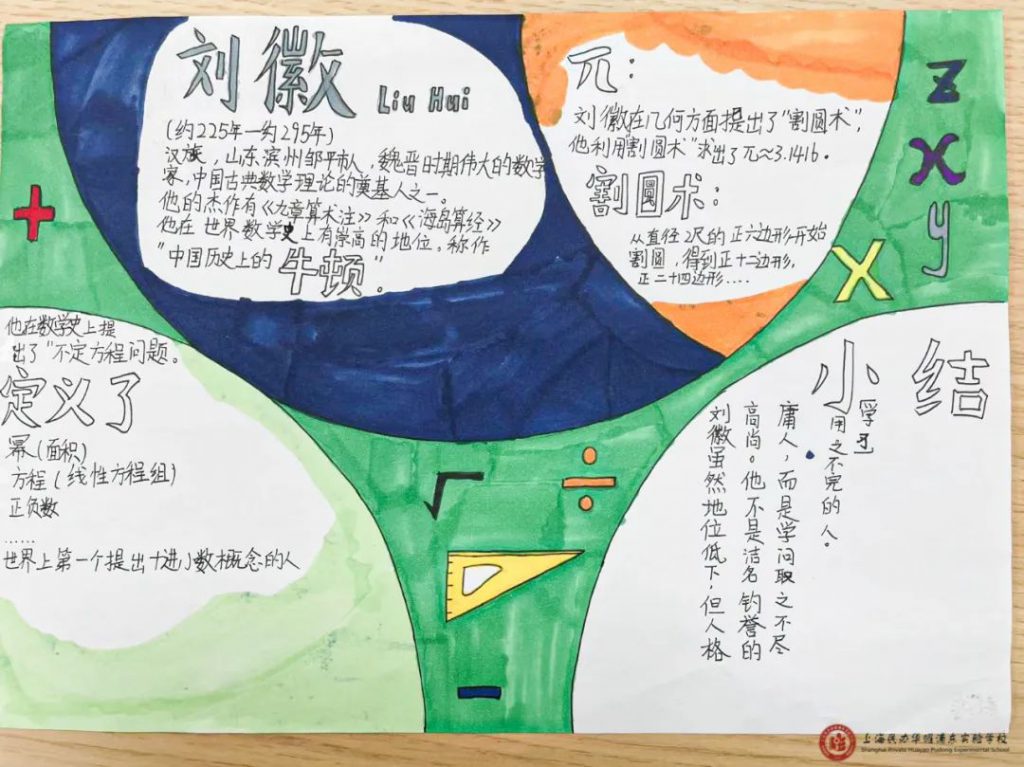 刘徽 Liu Hui
(约225年—约295年)
汉族，山东滨州邹平市人，魏晋时期伟大的数学
家，中国古典数学理论的奠基人之一。
他的杰作有《九章算术注》和《海岛算经》
他在世界数学史上有崇高的地位。称作
"中国历史上的牛顿"。
兀：
刘徽在几何方面提出了"割圆术"，
他利用"割圆术"求出了兀≈3.1416。
割圆术：
从直径2尺的正六边形开始
割圆，得到正十二边形，
正二十四边形....
z
x
y
+
x
他在数学史上提
出了"不定方程问题。
定义了
幂(面积)
方程(线性方程组)
正负数
……
世界上第一个提出十进小数概念的人
√
÷
-
小结
刘徽虽然地位低下，但人格
高尚。他不是沽名钓誉的
庸人，而是学问取之不尽
用之不完的人。
上海民办华曜浦东实验学校
Shanghai Private Huayao Pudong Experimental School